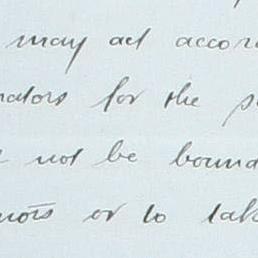 may act accor
nators for the
not be bound
or to tak